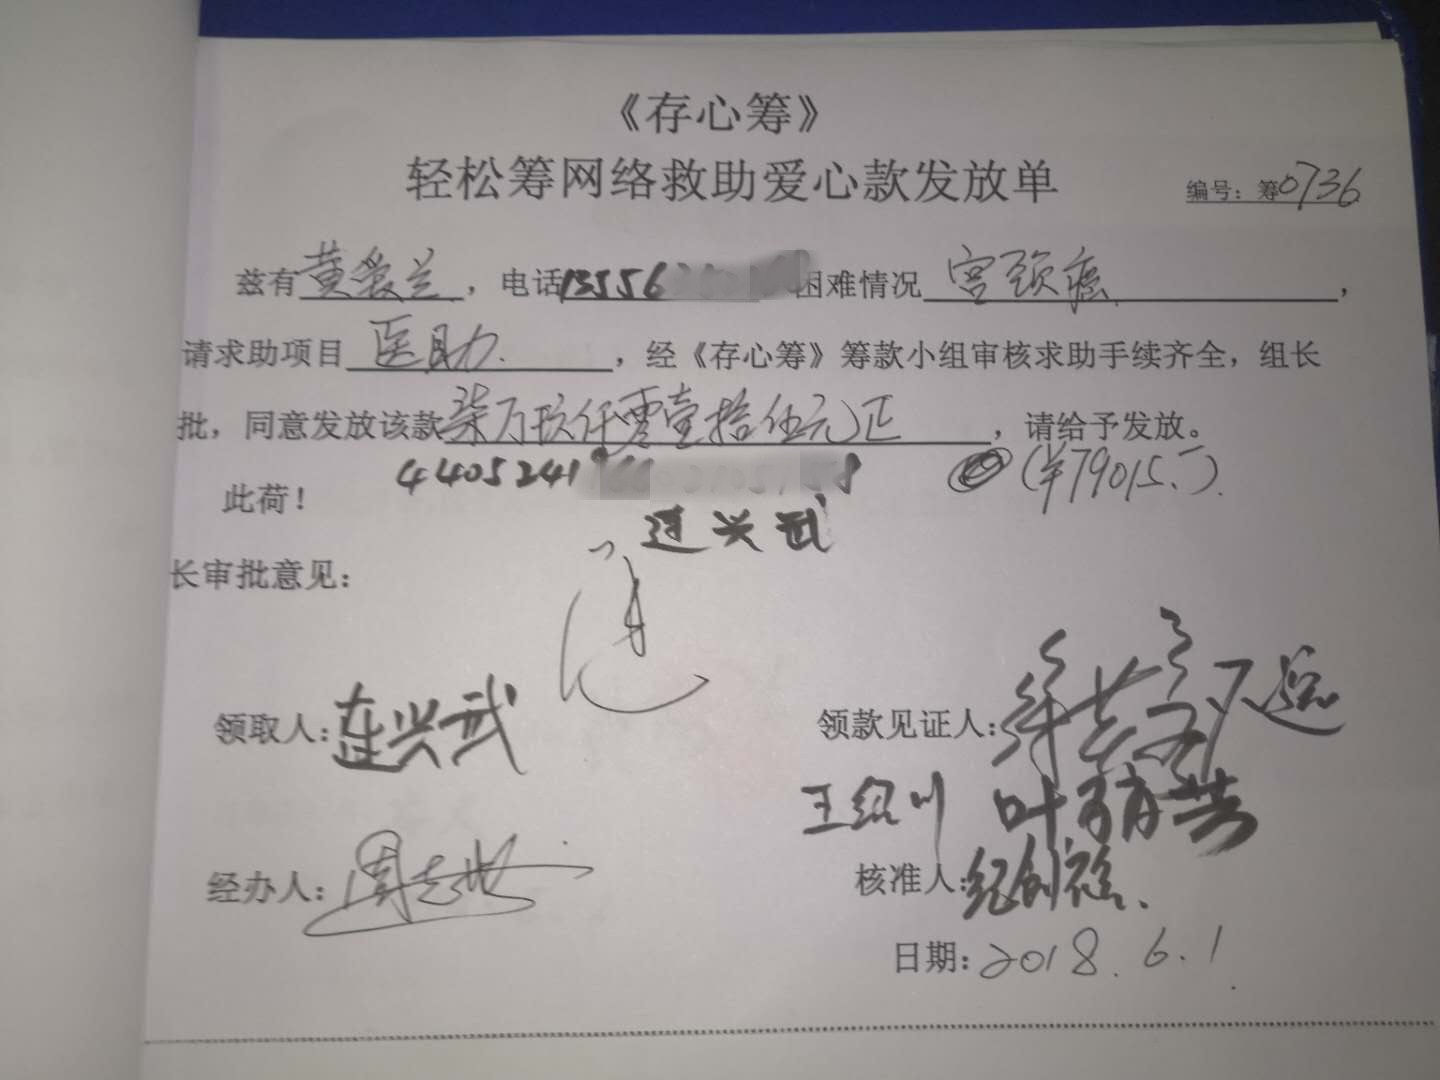 《存心筹》
轻松筹网络救助爱心款发放单
编号：筹0736
兹有黄爱兰，电话13556 困难情况宫颈癌，
请求助项目医助.，经《存心筹》筹款小组审核求助手续齐全，组长
批，同意发放该款柒万玖仟零壹拾伍元正，请给予发放。
4405241
此荷！
(¥79015.-).
连兴武
长审批意见：
领取人：连兴武
领款见证人：
王绍川
经办人：
核准人：纪创裕.
日期：2018.6.1.